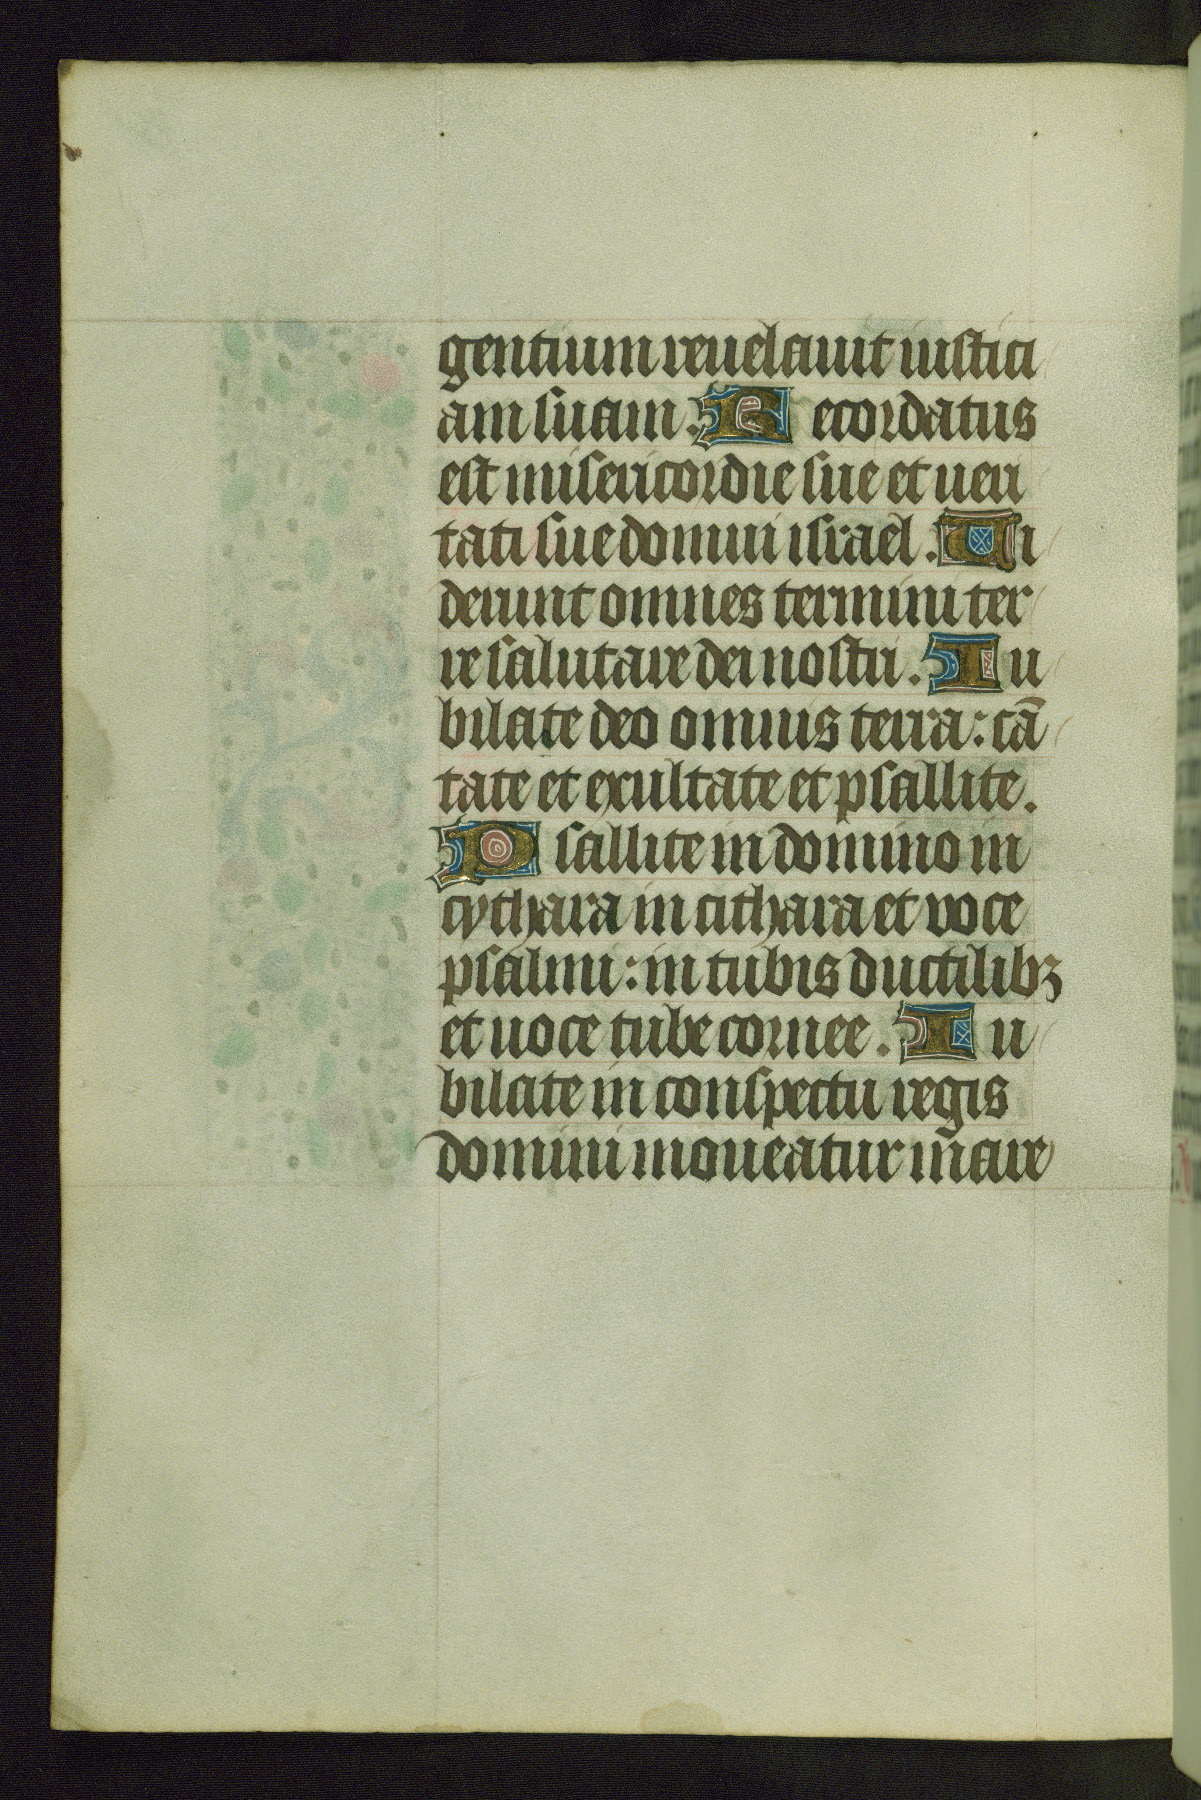 gentium reuelauit iustici
am suam. Recordatus
est misericordie sue et ueri
tati sue domui israel. Ui
derunt omnes termini ter
re salutare dei nostri. Iu
bilate deo omnis terra: cā
tate et exultate et psallite.
Psallite in domino in
cythara in cithara et uoce
psalmi: in tubis ductilibꝫ
et uoce tube cornee. Iu
bilate in conspectu regis
domini moueatur mare